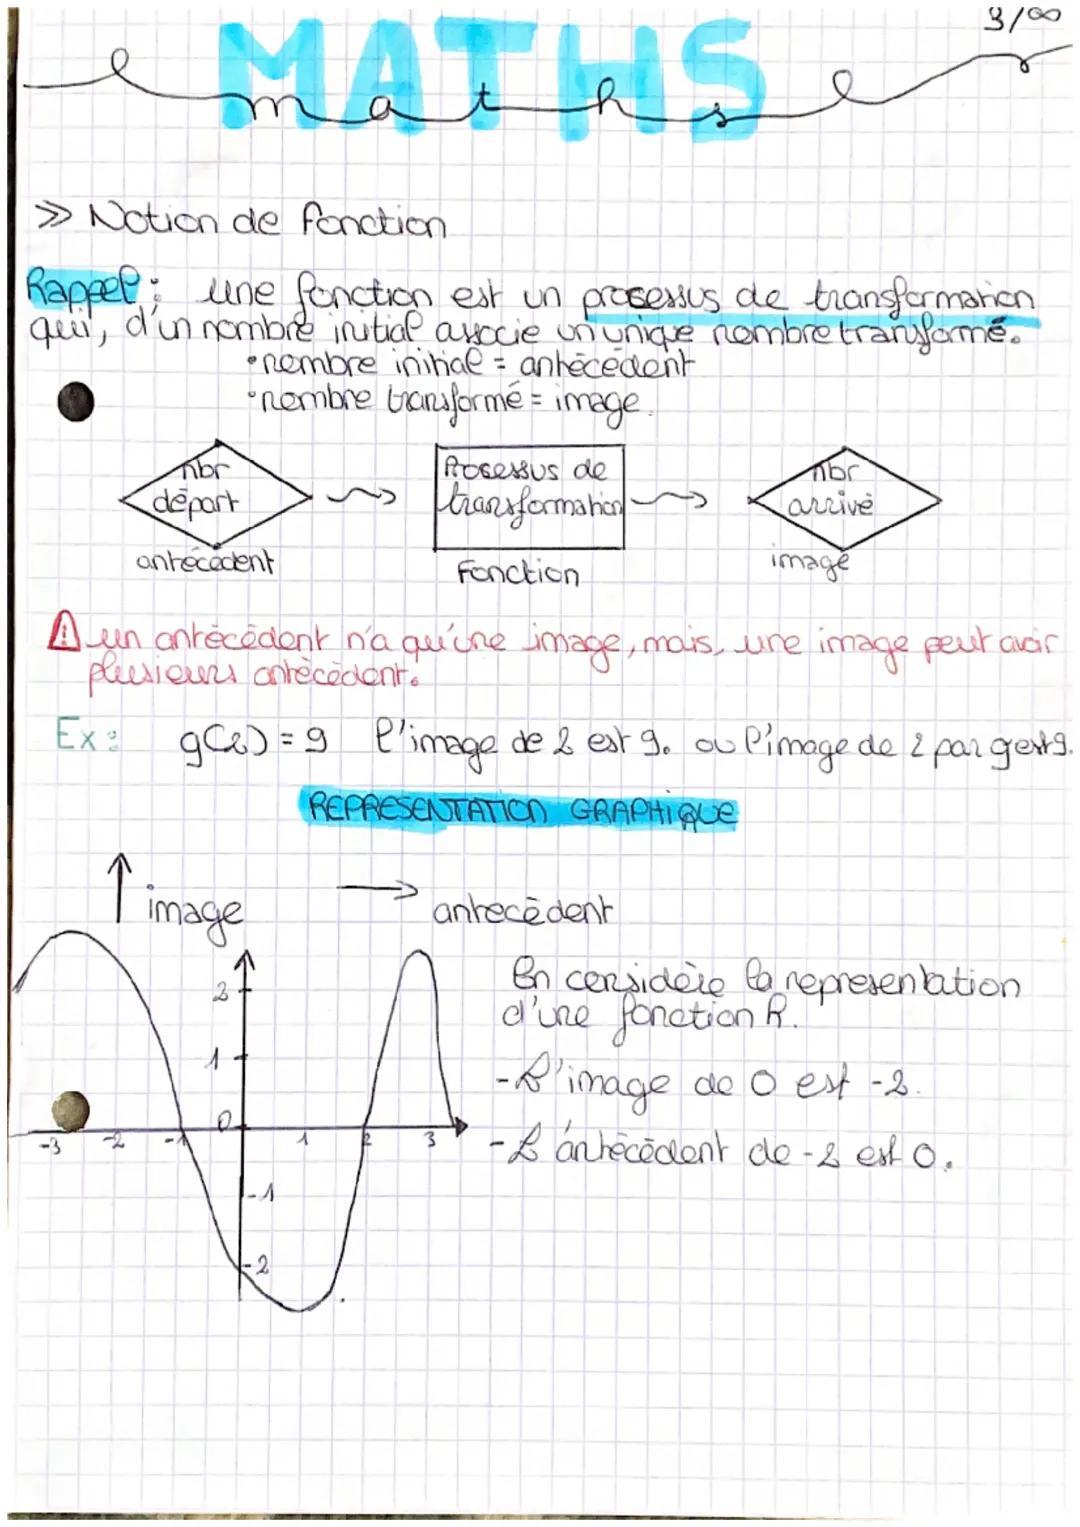 3/∞
MATHS
maths
>> Notion de fonction
Rappel : une fonction est un prosessus de transformation
qui, d'un nombre initial associe un unique nombre transformé.
• nombre initial = antécédent
• nombre transformé = image.
nbr
départ
antécédent
Prosessus de
transformation
Fonction
nbr
arrivé
image
⚠ un antécédent n'a qu'une image, mais, une image peut avoir
plusieurs antécédent.
Ex : g(2) = 9 l'image de 2 est 9. ou l'image de 2 par g est 9.
REPRESENTATION GRAPHIQUE
↑ image → antécédent
En considère la representation
d'une fonction h.
- L'image de 0 est -2.
- L'antécédent de -2 est 0.
2
1
0
-3 -2 -1 1 2 3
-1
-2